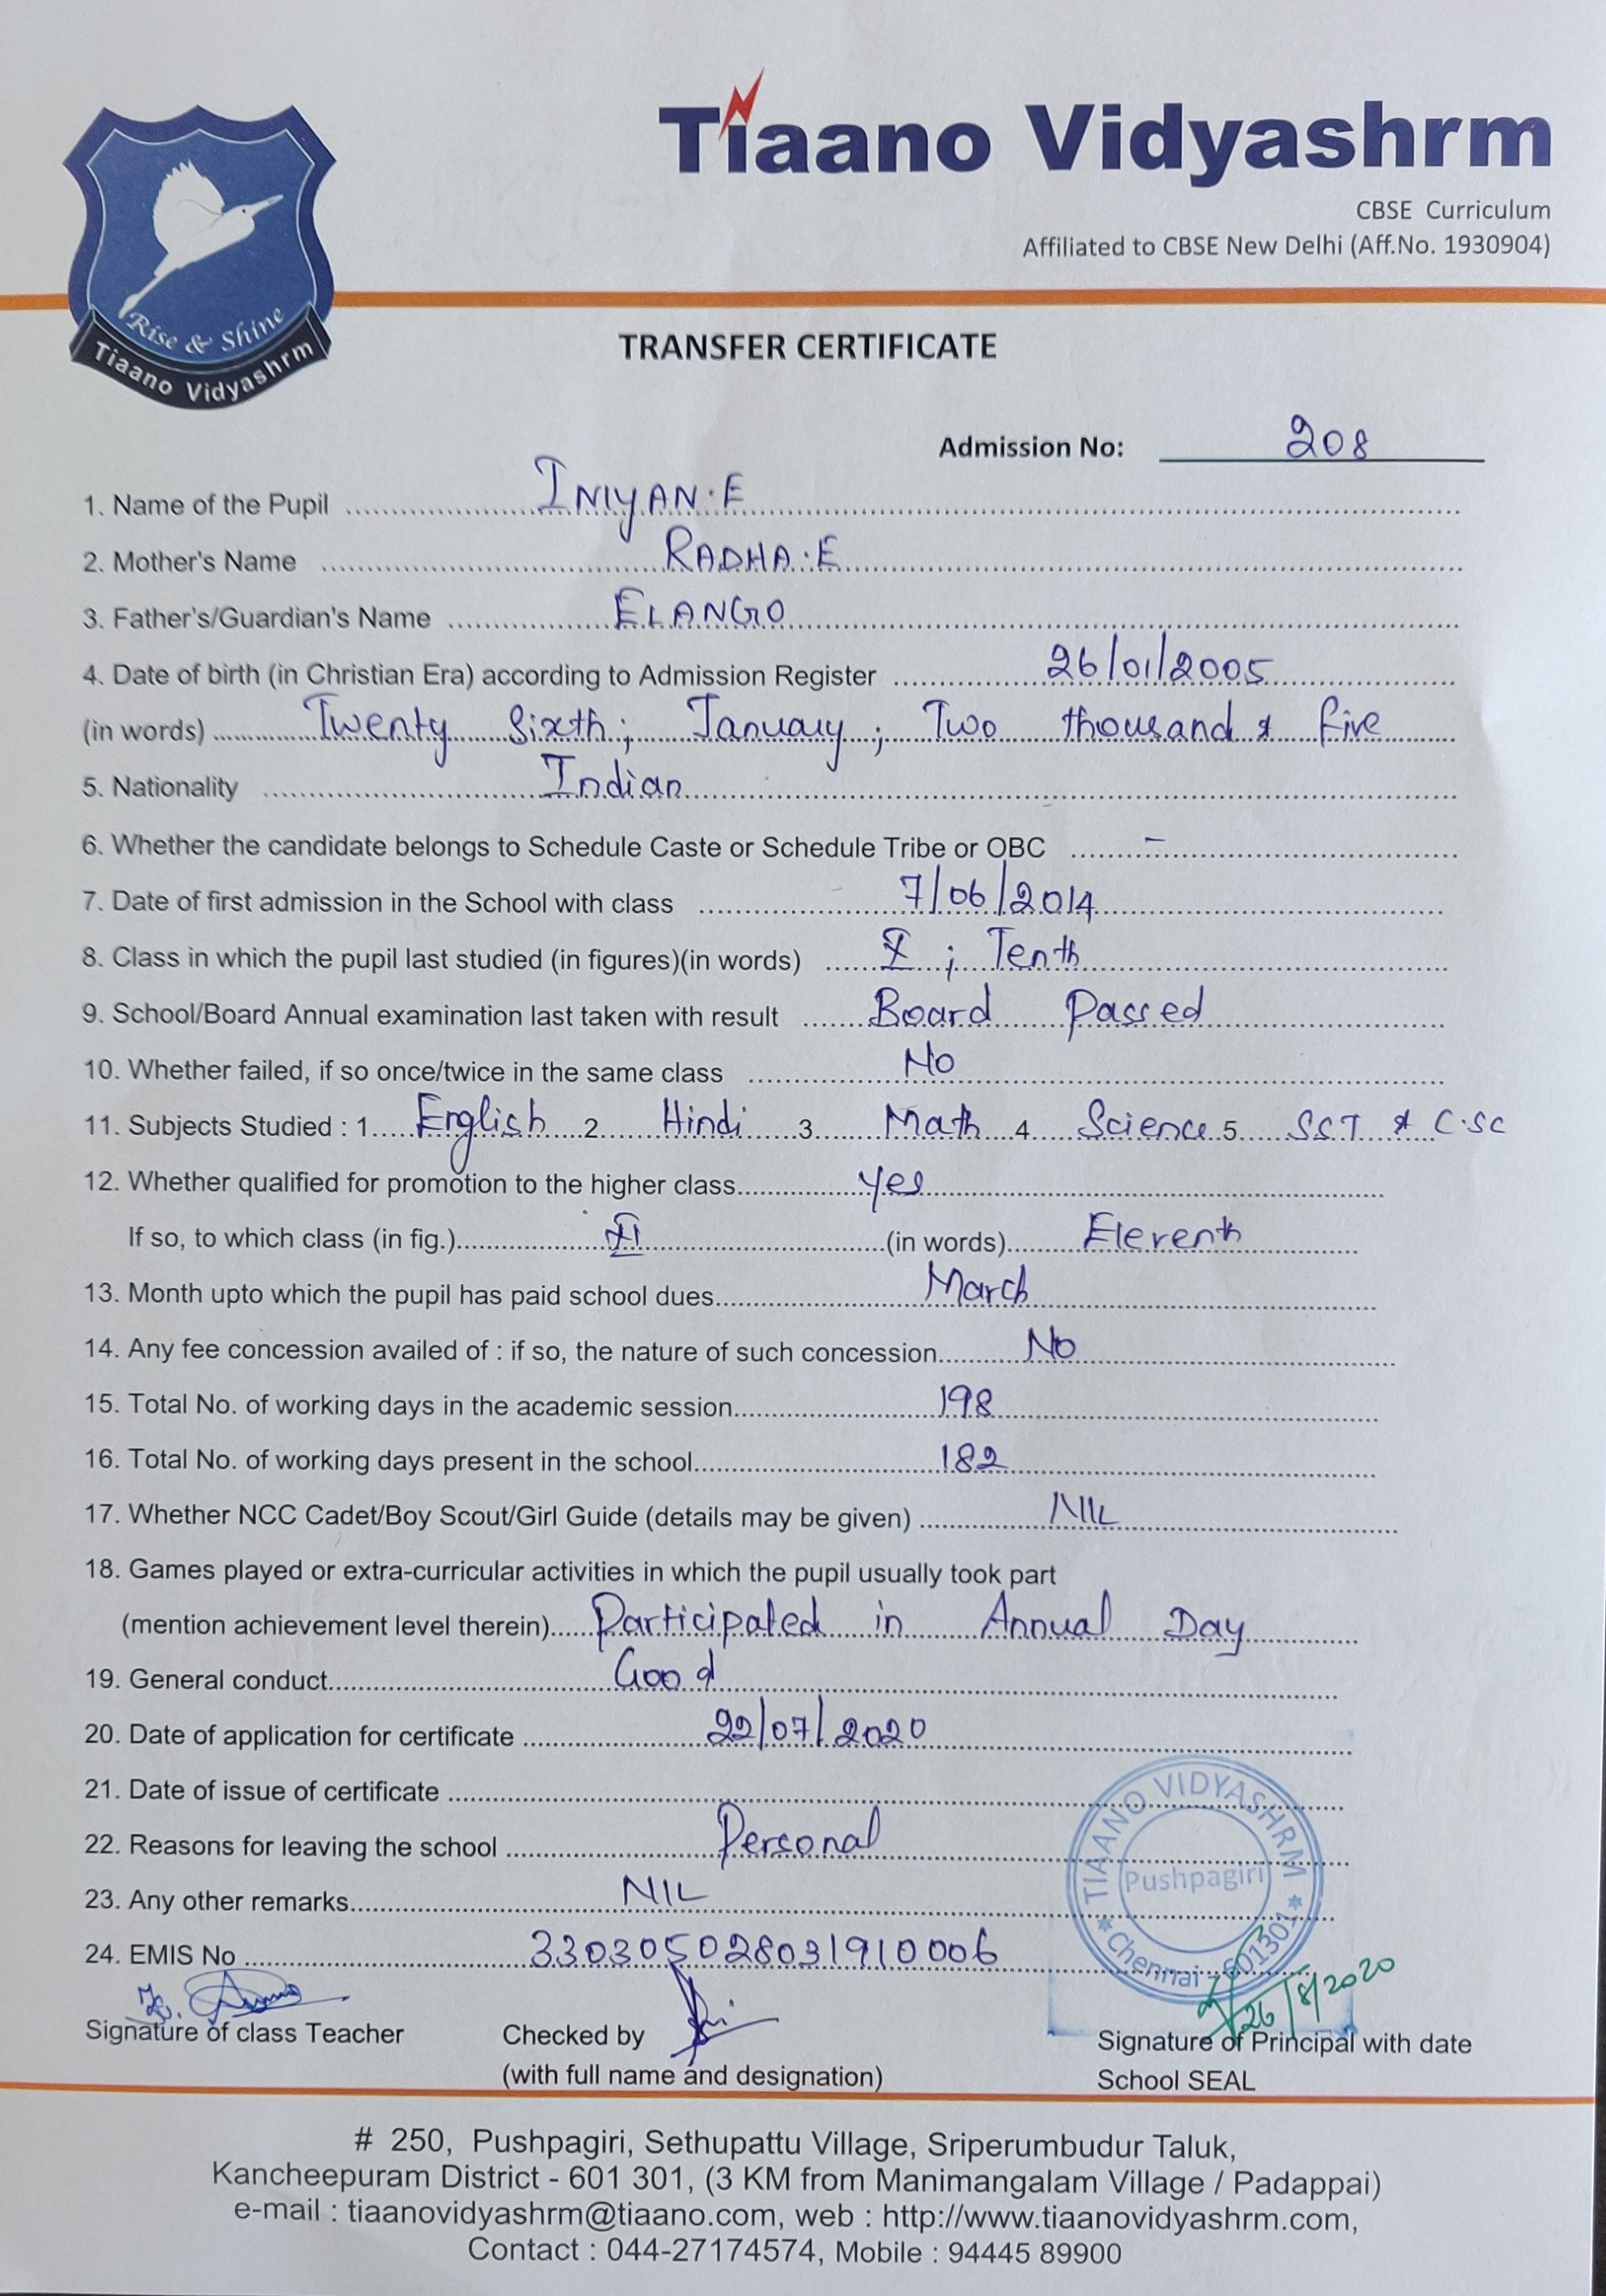 Tiaano Vidyashrm
CBSE Curriculum
Affiliated to CBSE New Delhi (Aff.No. 1930904)
Rise & Shine
Tiaano Vidyashrm
TRANSFER CERTIFICATE
Admission No: 208
1. Name of the Pupil INIYAN.E
2. Mother's Name RADHA.E
3. Father's/Guardian's Name ELANGO
4. Date of birth (in Christian Era) according to Admission Register 26/01/2005
(in words) Twenty Sixth; January; Two thousand & Five
5. Nationality Indian
6. Whether the candidate belongs to Schedule Caste or Schedule Tribe or OBC –
7. Date of first admission in the School with class 7/06/2014
8. Class in which the pupil last studied (in figures)(in words) X ; Tenth
9. School/Board Annual examination last taken with result Board Passed
10. Whether failed, if so once/twice in the same class No
11. Subjects Studied : 1. English 2. Hindi 3. Math 4. Science 5. SST & C.SC
12. Whether qualified for promotion to the higher class yes
If so, to which class (in fig.) XI (in words) Eleventh
13. Month upto which the pupil has paid school dues March
14. Any fee concession availed of : if so, the nature of such concession No
15. Total No. of working days in the academic session 198
16. Total No. of working days present in the school 182
17. Whether NCC Cadet/Boy Scout/Girl Guide (details may be given) NIL
18. Games played or extra-curricular activities in which the pupil usually took part
(mention achievement level therein) Participated in Annual Day
19. General conduct Good
20. Date of application for certificate 22/07/2020
21. Date of issue of certificate
22. Reasons for leaving the school Personal
23. Any other remarks NIL
24. EMIS No 330305028031910006
TIAANO VIDYASHRM
Pushpagiri
Chennai - 601301
26/8/2020
Signature of class Teacher Checked by Signature of Principal with date
(with full name and designation) School SEAL
# 250, Pushpagiri, Sethupattu Village, Sriperumbudur Taluk,
Kancheepuram District - 601 301, (3 KM from Manimangalam Village / Padappai)
e-mail : tiaanovidyashrm@tiaano.com, web : http://www.tiaanovidyashrm.com,
Contact : 044-27174574, Mobile : 94445 89900